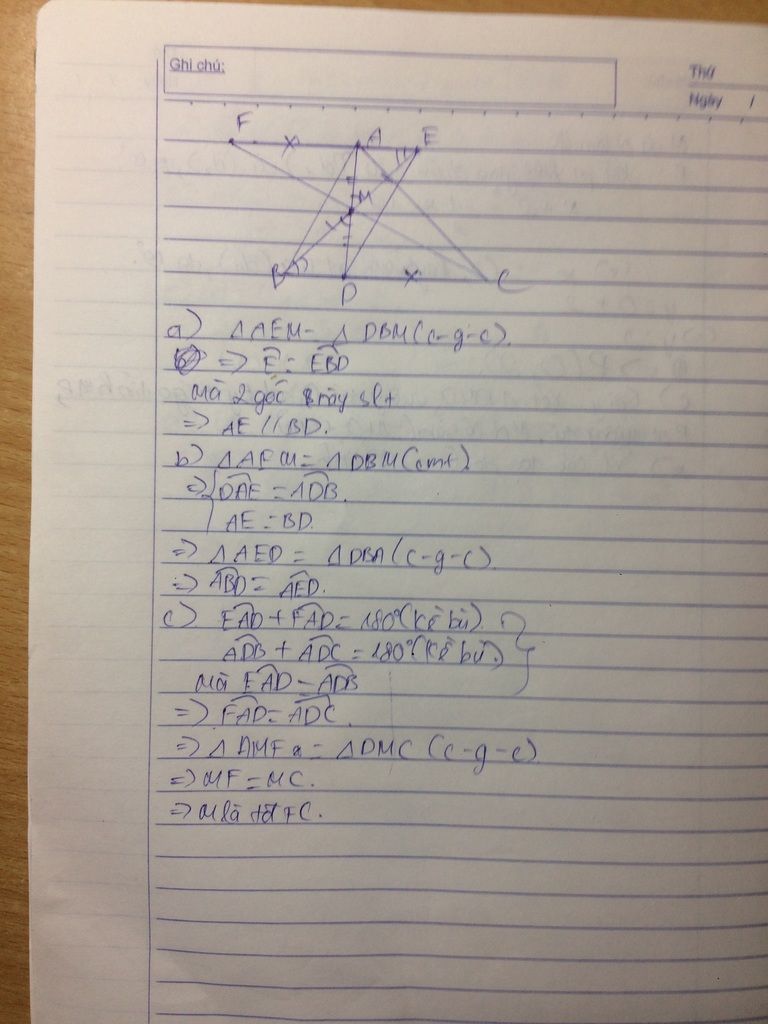 Ghi chú:
Thứ
Ngày /
F A E
M
B D C
a) Δ AEM = Δ DBM (c-g-c).
=> Ê = EBD
mà 2 góc này slt
=> AE // BD.
b) Δ AEM = Δ DBM (cmt)
=> { DAE = ADB.
AE = BD.
=> Δ AED = Δ DBA (c-g-c).
=> ABD = AED.
c) EAD + FAD = 180° (kề bù)
ADB + ADC = 180° (kề bù) }
mà EAD = ADB
=> FAD = ADC.
=> Δ AMF = Δ DMC (c-g-c)
=> MF = MC.
=> M là tđ FC.